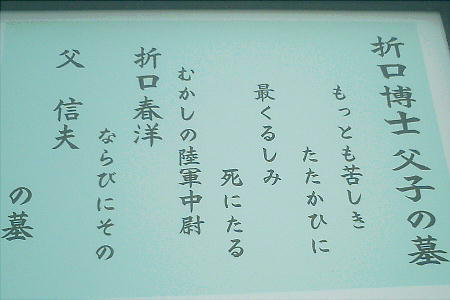 折口博士 父子の墓
もっとも苦しき
たたかひに
最くるしみ
死にたる
むかしの陸軍中尉
折口春洋
ならびにその
父 信夫
の墓